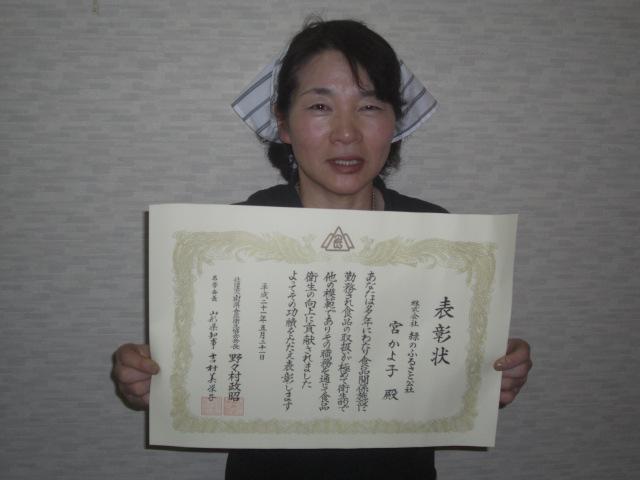 表彰状
株式会社 緑のふるさと公社
宮 かよ子 殿
あなたは多年にわたり食品関係施設に
勤務され食品の取扱いが極めて衛生的で
他の模範でありその職務を通じて食品
衛生の向上に貢献されました
よってその功績をたたえ表彰します
平成二十一年五月二十一日
野々村政昭
名誉会長 山形県知事 吉村美栄子